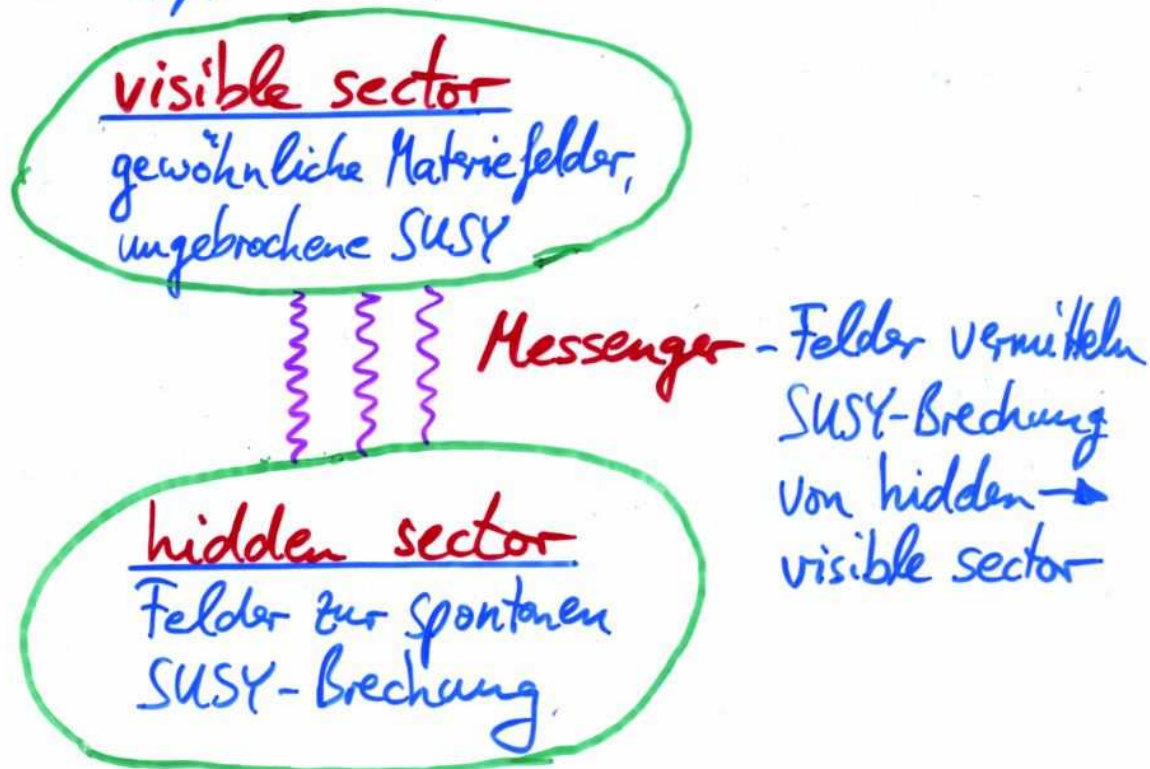 visible sector
gewöhnliche Materiefelder,
ungebrochene SUSY
Messenger - Felder vermitteln
SUSY-Brechung
von hidden →
visible sector
hidden sector
Felder zur spontanen
SUSY-Brechung.